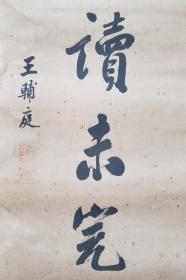 讀未完
王輔庭